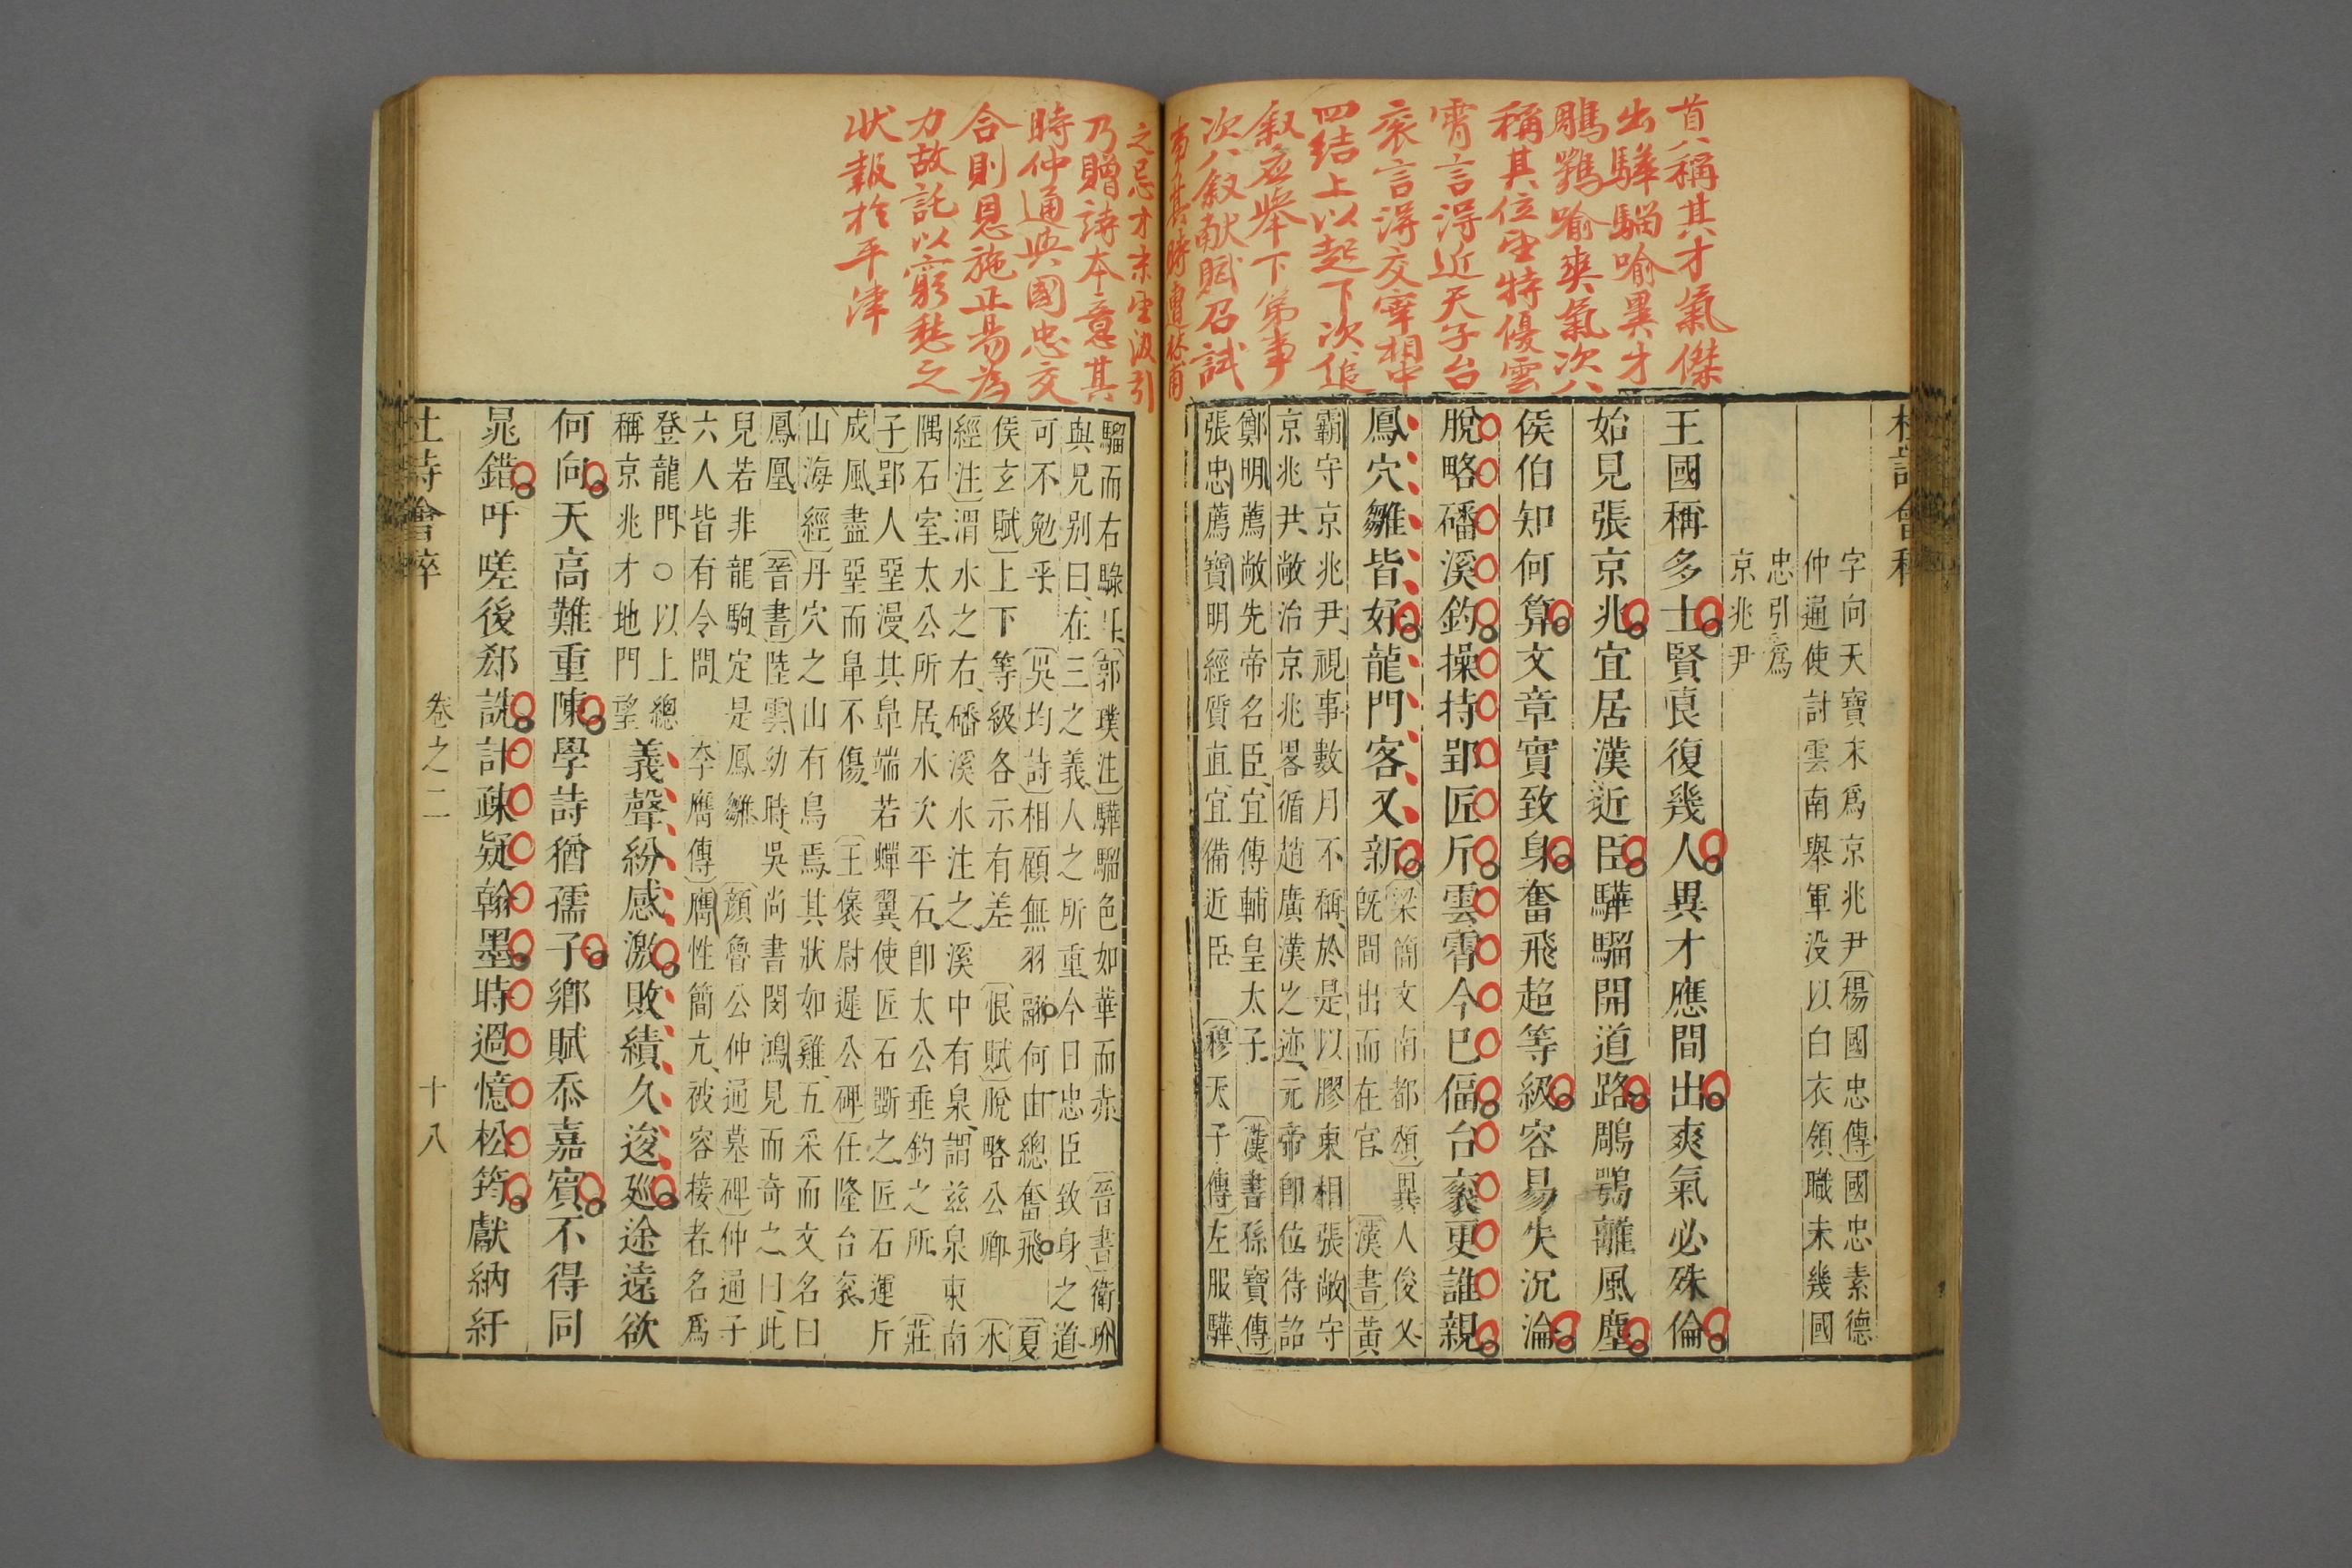 首八稱其才氣傑
出驊騮喻異才
鵰鶚喻爽氣次八
稱其位望特優雲
霄言得近天子台
衮言得交宰相中
四結上以起下次追
叙应举下第事
次八叙献賦召試
事其時遭林甫
之忌才末望汲引
乃贈詩本意其
時仲通與國忠交
合則恩施正易為
力故託以窮愁之
狀報於平津
杜詩會稡
字向天寶末爲京兆尹〔楊國忠傳〕國忠素德
仲通使討雲南舉軍没以白衣領職未幾國
忠引爲
京兆尹
王國稱多士賢良復幾人異才應間出爽氣必殊倫
始見張京兆宜居漢近臣驊騮開道路鵰鶚離風塵
侯伯知何算文章實致身奮飛超等級容易失沉淪
脫略磻溪釣操持郢匠斤雲霄今已偪台衮更誰親
鳳穴雛皆好龍門客又新
〔梁簡文南都頌〕異人俊乂
旣間出而在官〔漢書〕黃
霸守京兆尹視事數月不稱於是以膠東相張敞守
京兆尹敞治京兆畧循趙廣漢之迹元帝卽位待詔
鄭朋薦敞先帝名臣宜傳輔皇太子〔漢書孫寶傳〕
張忠薦寶明經質直宜備近臣〔穆天子傳〕左服驊
騮而右騄耳〔郭璞注〕驊騮色如華而赤〔晉書〕衛玠
與兄别曰在三之義人之所重今日忠臣致身之道
可不勉乎〔吳均詩〕相顧無羽翮何由總奮飛〔夏
侯玄賦〕上下等級各示有差〔恨賦〕脫略公卿〔水
經注〕渭水之右磻溪水注之溪中有泉謂兹泉東南
隅石室太公所居水次平石卽太公垂釣之所〔莊
子〕郢人堊漫其鼻端若蟬翼使匠石斲之匠石運斤
成風盡堊而鼻不傷〔王褒尉遲公碑〕任隆台衮〔
山海經〕丹穴之山有鳥焉其狀如雞五采而文名曰
鳳凰〔晉書〕陸雲幼時吳尚書閔鴻見而奇之曰此
兒若非龍駒定是鳳雛〔顏魯公仲通墓碑〕仲通子
六人皆有令問〔李膺傳〕膺性簡亢被容接者名爲
登龍門○以上總
稱京兆才地門望
義聲紛感激敗績久逡廵途遠欲
何向天高難重陳學詩猶孺子鄉賦忝嘉賓不得同
晁錯吁嗟後郄詵計疎疑翰墨時過憶松筠獻納紆
杜詩會稡
卷之二
十八